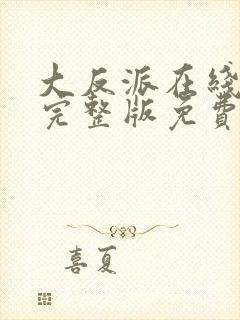 大反派在线
完整版免費
喜夏